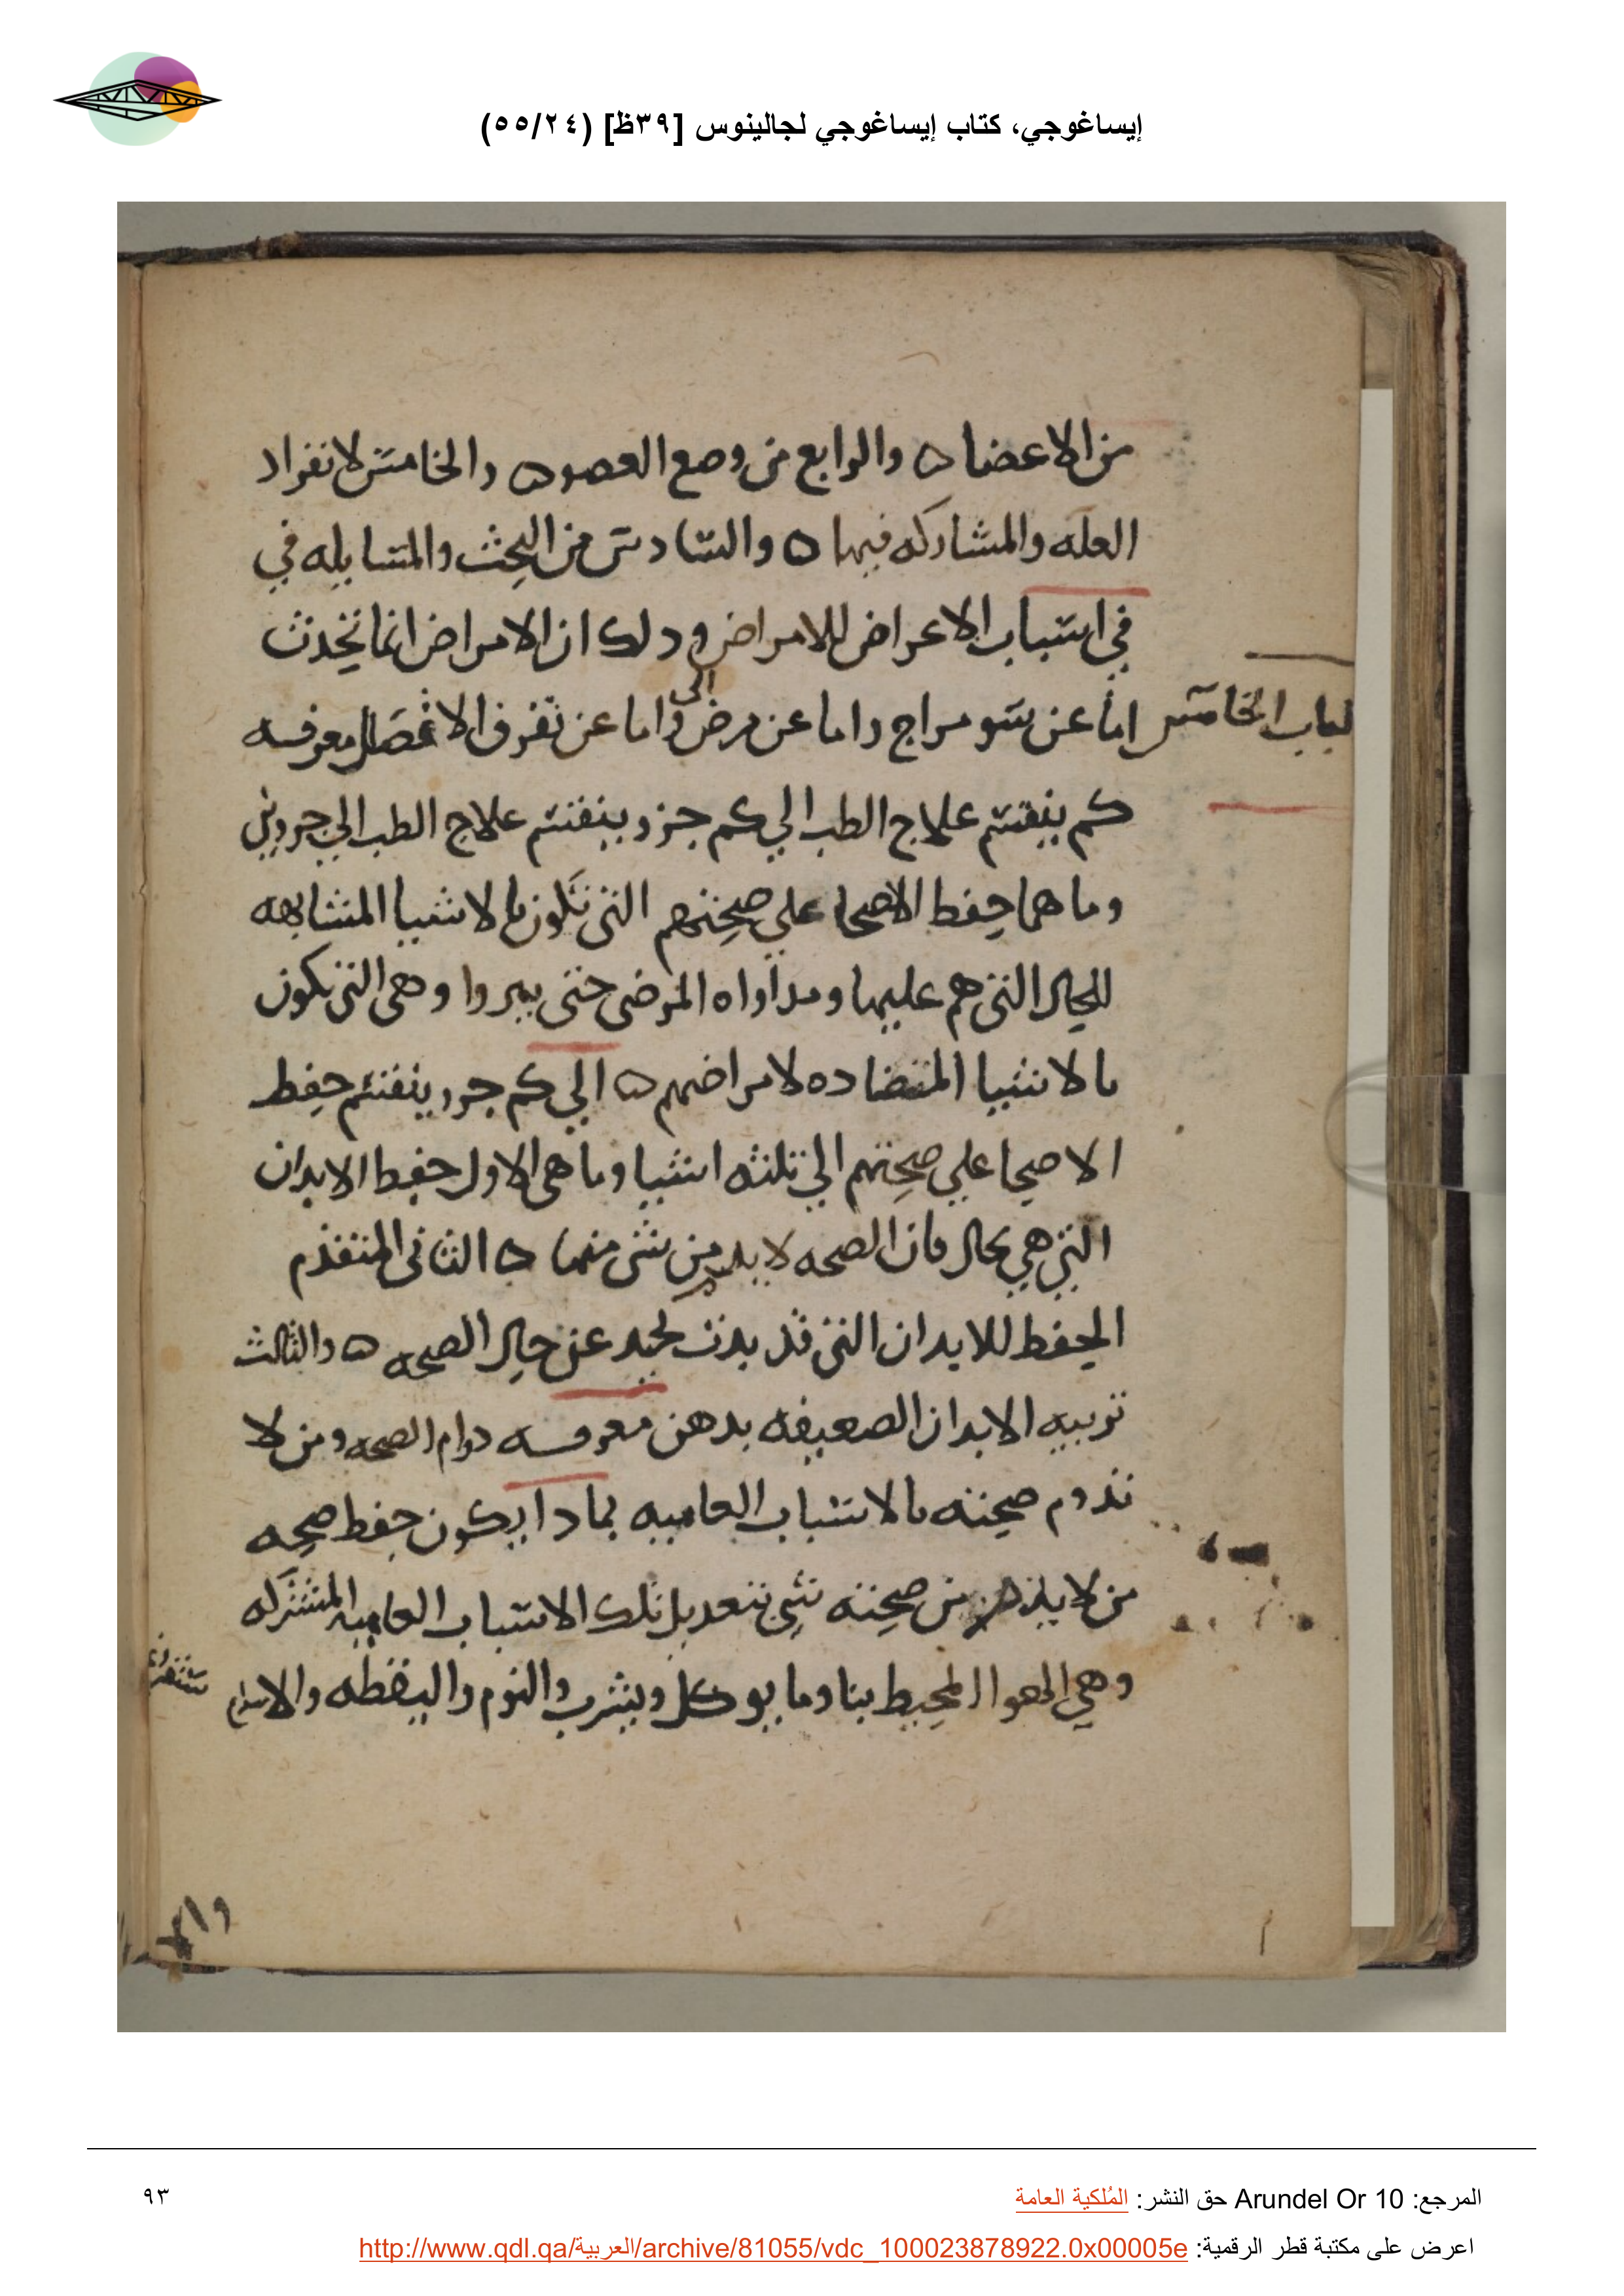 إيساغوجي، كتاب إيساغوجي لجالينوس [٣٩ظ] (٥٥/٢٤)
من الاعضا ه والرابع من وضع العضو ه والخامس لانفراد
العله والمشاركه فيها ه والسادس من البحث والمسايله في
في اسباب الاعراض للامراض ودلك ان الامراض انما تحدث
الباب الخامس
اما عن سو مزاج واما عن مرض الى واما عن تفرق الاتصال معرفه
كم ينقسم علاج الطب الي كم جزو ينقسم علاج الطب الي جزوين
وما هما حفظ الاصحا علي صحتهم التي تكون بالاشيا المتشابهه
للحال التي هم عليها ومداواه المرضى حتى يبروا وهي التي تكون
بالاشيا المتضاده لامراضهم ه الي كم جزو ينقسم حفظ
الاصحا علي صحتهم الي ثلثه اشيا وما هي الاول حفظ الابدان
التي هي بحال فان الصحه لابد من شي منها ه الثاني المتقدم
الحفظ للابدان التي قد بدت تحيد عن حال الصحه ه والثالث
تربيه الابدان الضعيفه بدهن معرفه دوام الصحه ومن لا
تدوم صحته بالاسباب العاميه بمادا يكون حفظ صحه
من لا يذهب من صحته شي بتعديل تلك الاسباب العاميه المشتركه
وهي الهوا المحيط بنا وما يوكل ويشرب والنوم واليقظه
والا
المرجع: Arundel Or 10 حق النشر: المُلكية العامة
٩٣
اعرض على مكتبة قطر الرقمية: http://www.qdl.qa/العربية/archive/81055/vdc_100023878922.0x00005e